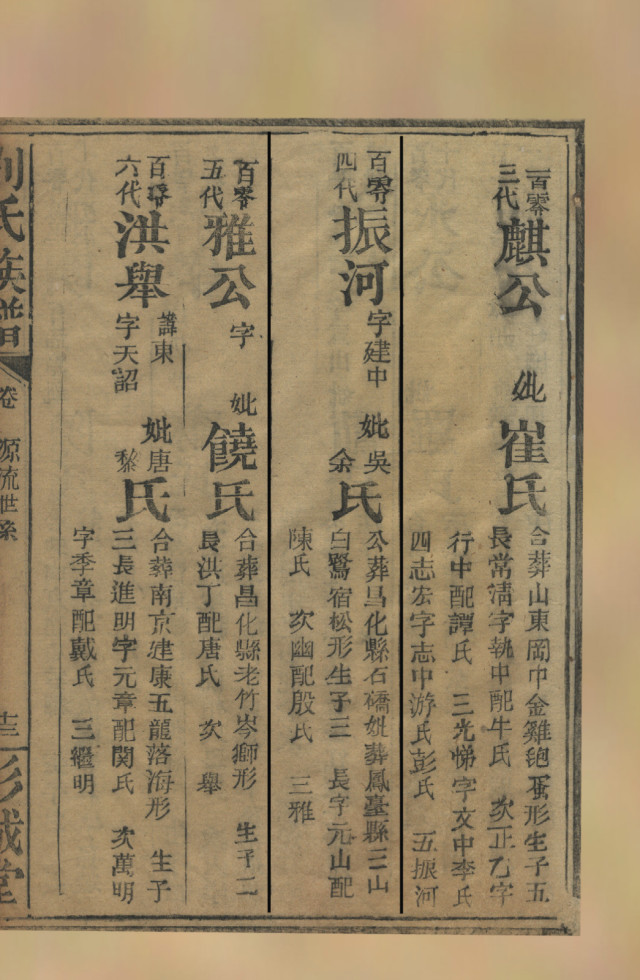 百零
三代
麒公
妣
崔氏
合葬山東岡中金雞抱蛋形生子五
長常清字執中配牛氏 次正乙字
行中配譚氏 三光悌字文中李氏
四志宏字志中游氏彭氏 五振河
百零
四代
振河
字建中
妣吳
余
氏
公葬昌化縣石橋妣葬鳳臺縣三山
白鷺宿松形生子三 長字元山配
陳氏 次幽配殷氏 三雅
百零
五代
雅公
字
妣
饒氏
合葬昌化縣老竹岑獅形 生子二
長洪丁配唐氏 次舉
百零
六代
洪舉
諱東
字天詔
妣唐
黎
氏
合葬南京建康五龍落海形 生子
三長進明字元章配関氏 次萬明
字季章配戴氏 三繼明
刘氏族譜
卷
源流世系
十三
彭城堂